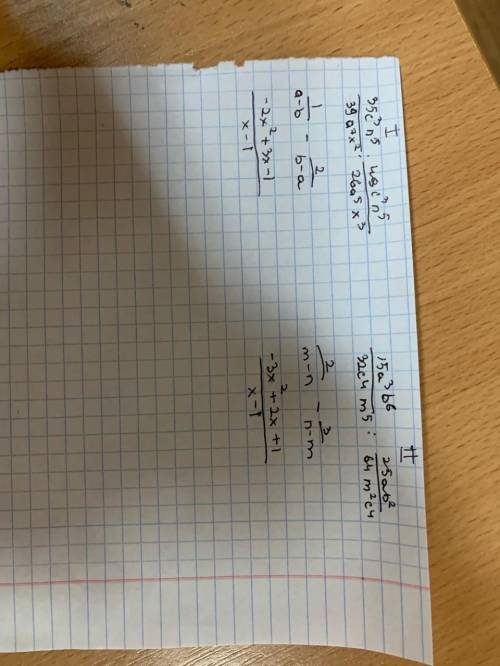 I
35c³n⁵/39a⁷x² : 49c³n⁵/26a⁵x³
1/a-b - 2/b-a
-2x²+3x-1/x-1
II
15a³b6/32c4m5 : 25ab²/64m²c4
2/m-n - 3/n-m
-3x²+2x+1/x-1